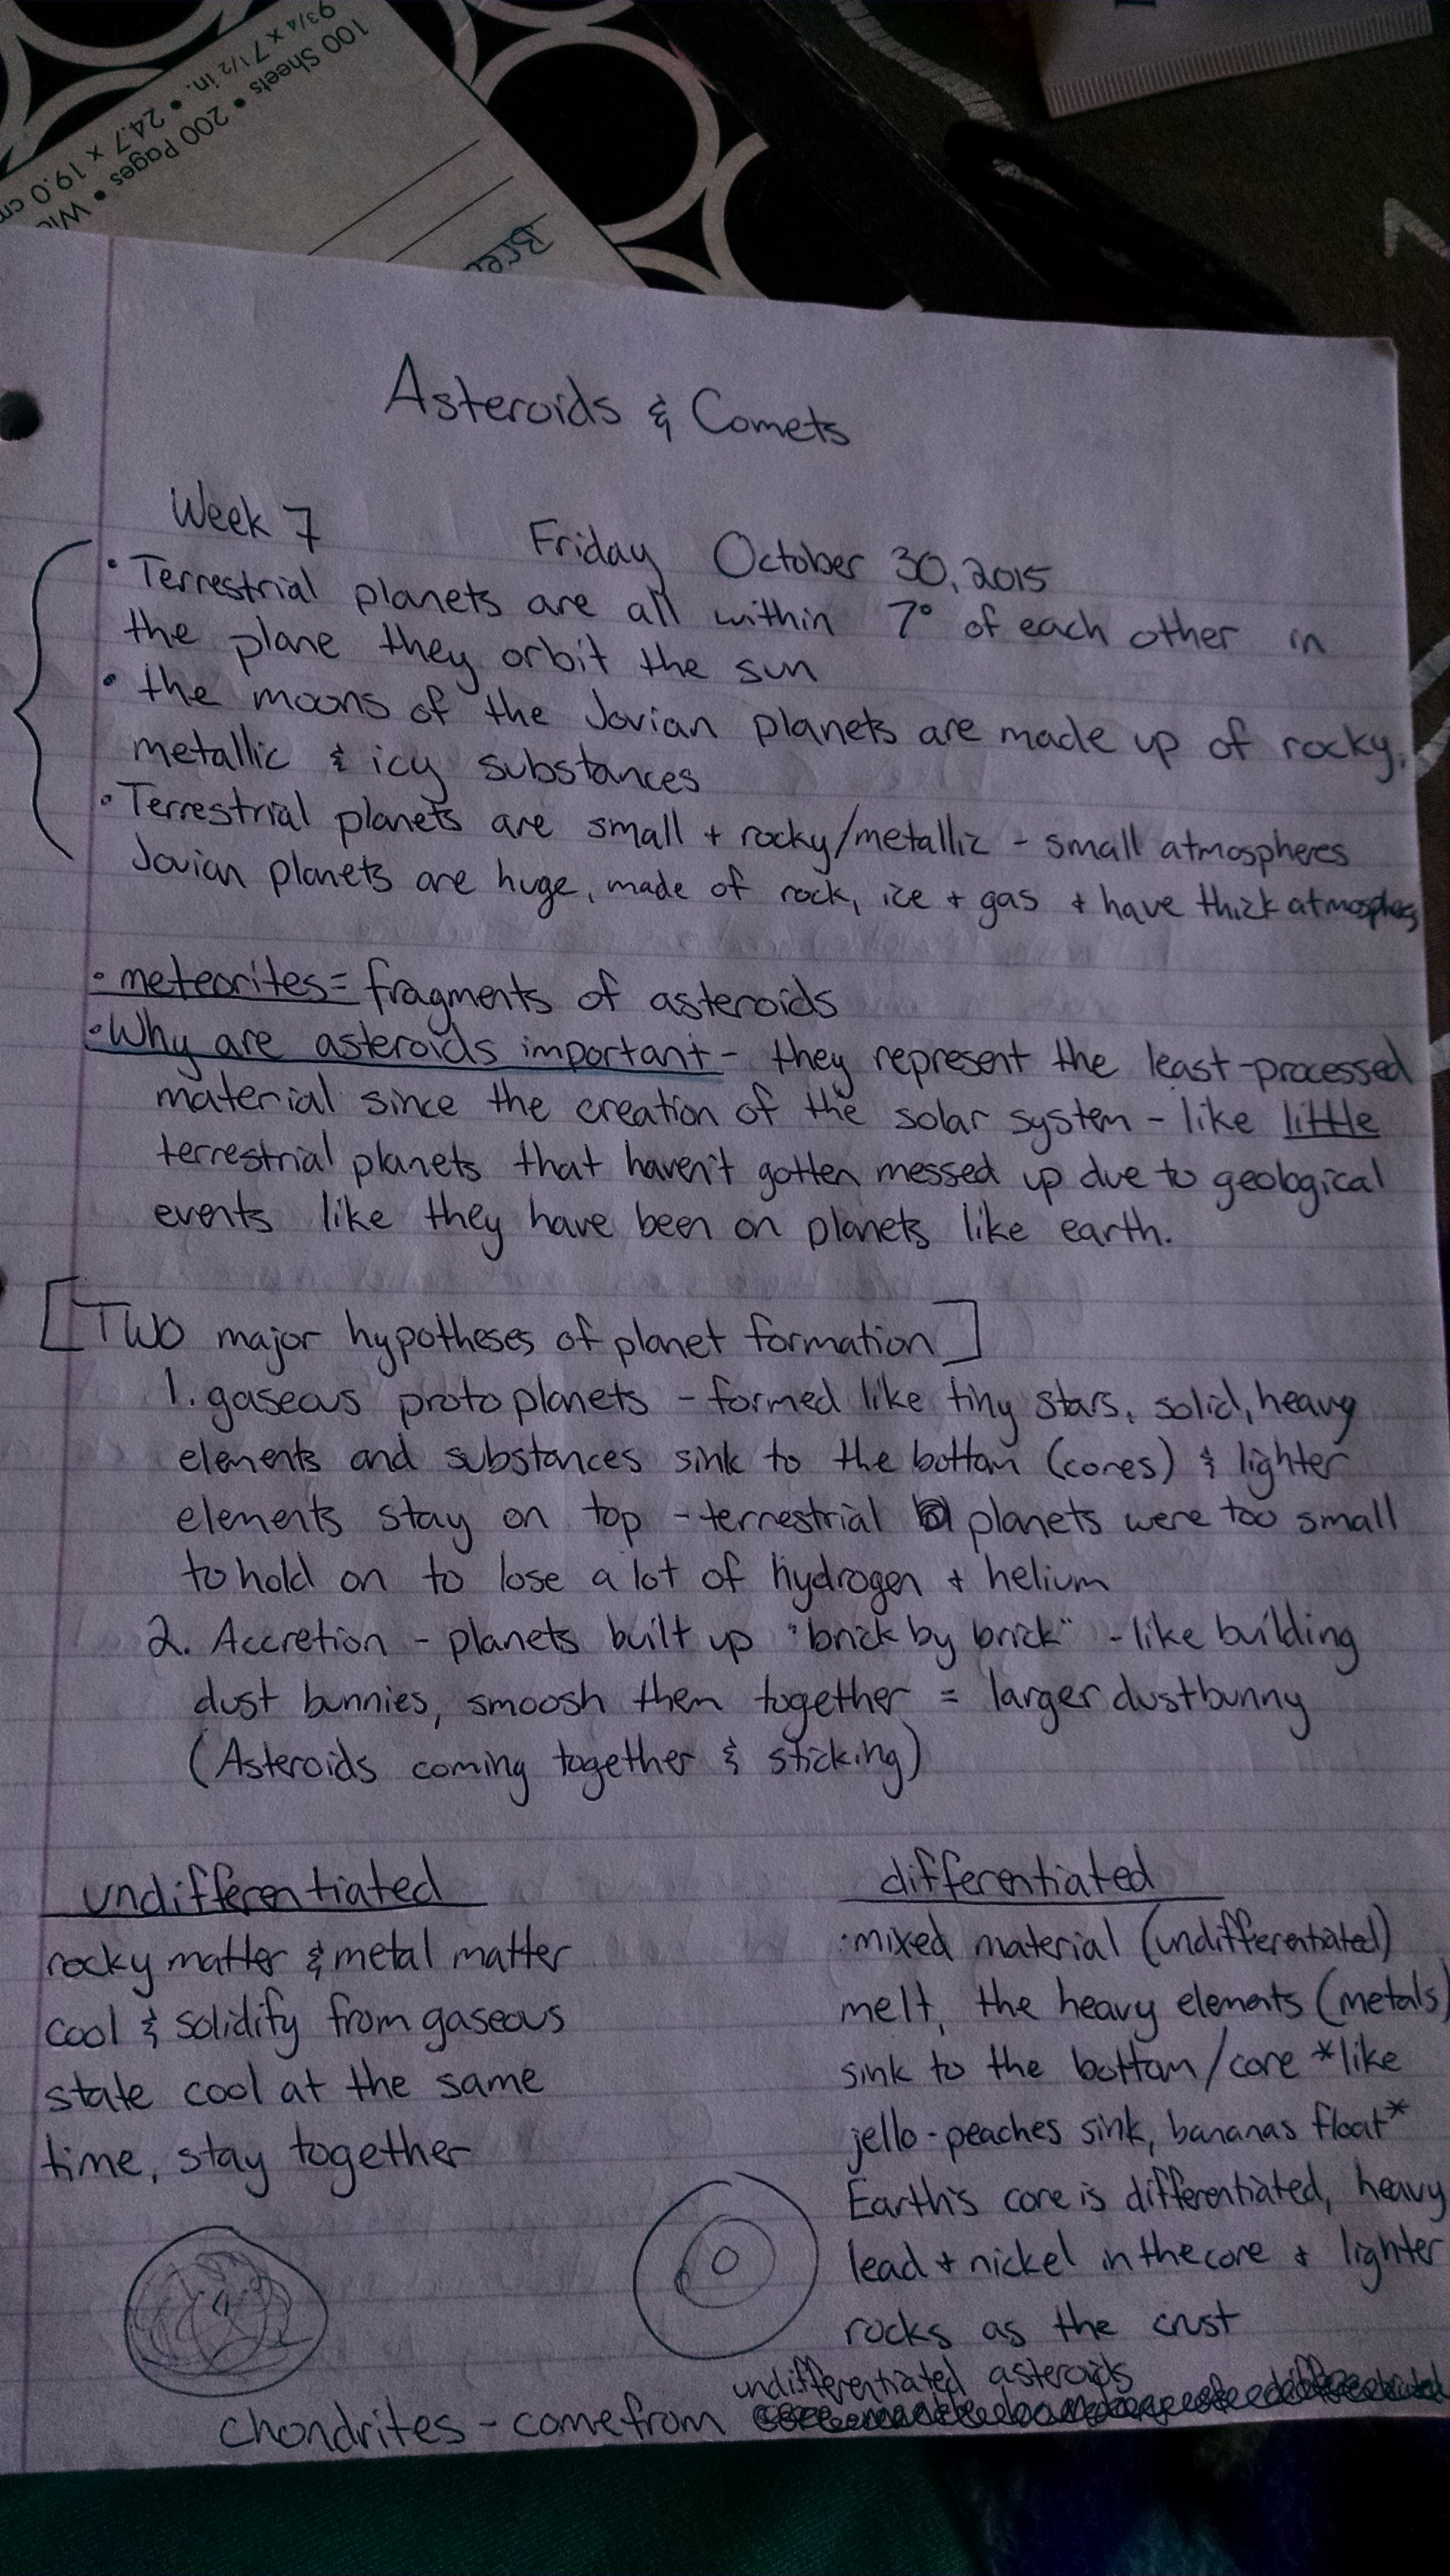 93/4 x 7 1/2 in. • 24.7 x 19.0 cm
100 Sheets • 200 Pages •
Asteroids & Comets
Week 7
Friday October 30, 2015
• Terrestrial planets are all within 7° of each other in
the plane they orbit the sun
• the moons of the Jovian planets are made up of rocky,
metallic & icy substances
• Terrestrial planets are small + rocky/metallic - small atmospheres
Jovian planets are huge, made of rock, ice + gas + have thick atmospheres
• meteorites = fragments of asteroids
• Why are asteroids important - they represent the least-processed
material since the creation of the solar system - like little
terrestrial planets that haven't gotten messed up due to geological
events like they have been on planets like earth.
[Two major hypotheses of planet formation]
1. gaseous protoplanets - formed like tiny stars, solid, heavy
elements and substances sink to the bottom (cores) & lighter
elements stay on top - terrestrial planets were too small
to hold on to lose a lot of hydrogen + helium
2. Accretion - planets built up "brick by brick" - like building
dust bunnies, smoosh them together = larger dustbunny
(Asteroids coming together & sticking)
undifferentiated
rocky matter & metal matter
cool & solidify from gaseous
state cool at the same
time, stay together
differentiated
• mixed material (undifferentiated)
melt, the heavy elements (metals)
sink to the bottom/core *like
jello - peaches sink, bananas float*
Earth's core is differentiated, heavy
lead + nickel in the core + lighter
rocks as the crust
undifferentiated asteroids
Chondrites - come from